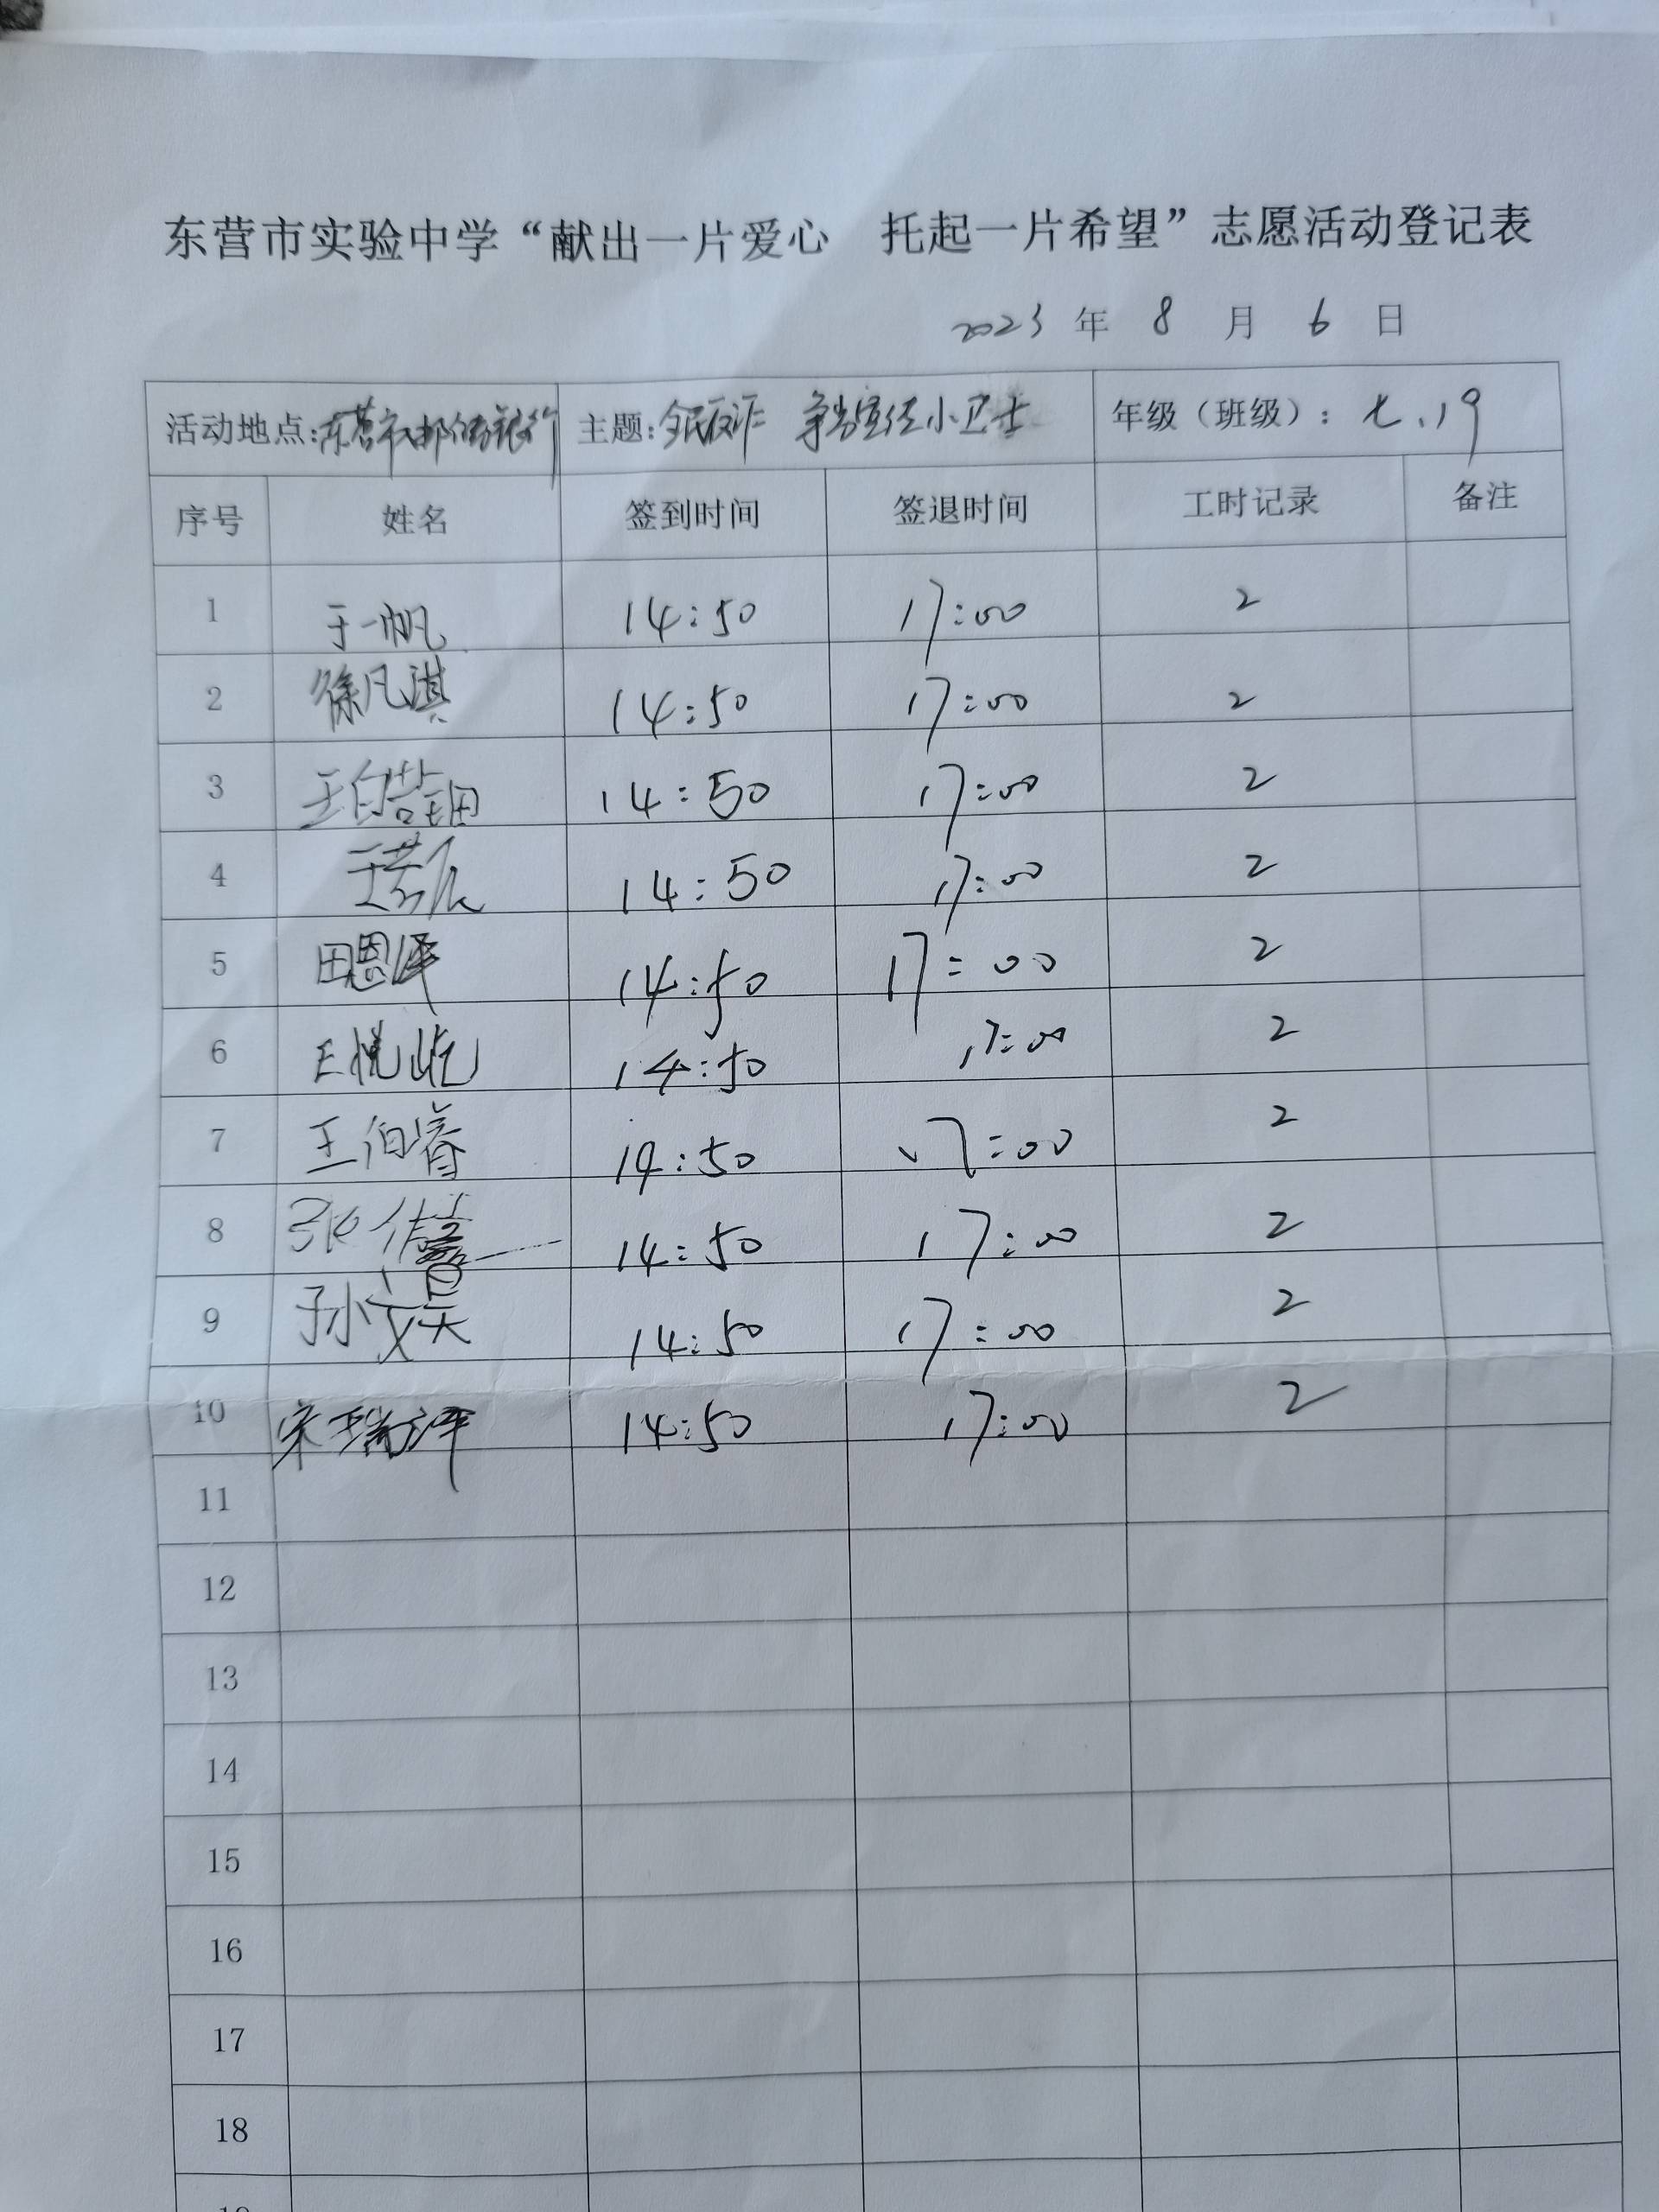 东营市实验中学“献出一片爱心 托起一片希望”志愿活动登记表
2023 年 8 月 6 日
活动地点:东营市邮储银行 主题:全民反诈 争当宣传小卫士 年级（班级）：七.19
序号 姓名 签到时间 签退时间 工时记录 备注
1 于一帆 14:50 17:00 2
2 徐凡淇 14:50 17:00 2
3 14:50 17:00 2
4 14:50 17:00 2
5 田恩泽 14:50 17:00 2
6 王悦屹 14:50 17:00 2
7 王伯睿 14:50 17:00 2
8 张倩 14:50 17:00 2
9 孙文昊 14:50 17:00 2
10 宋瑞泽 14:50 17:00 2
11
12
13
14
15
16
17
18